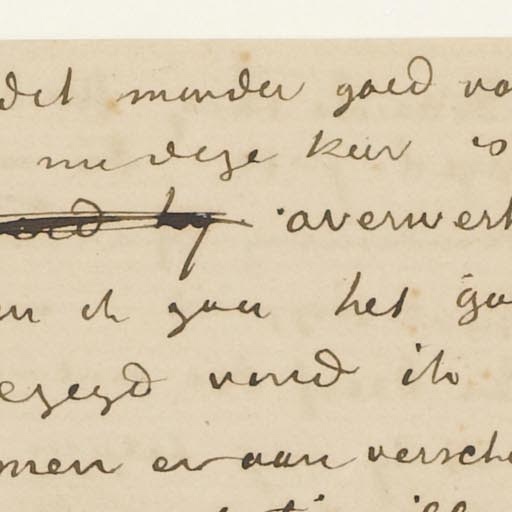 det minder goed va
nu deze keer is
hij overwerk
en ik zou het ga
egezegd vond ik
men er aan versch